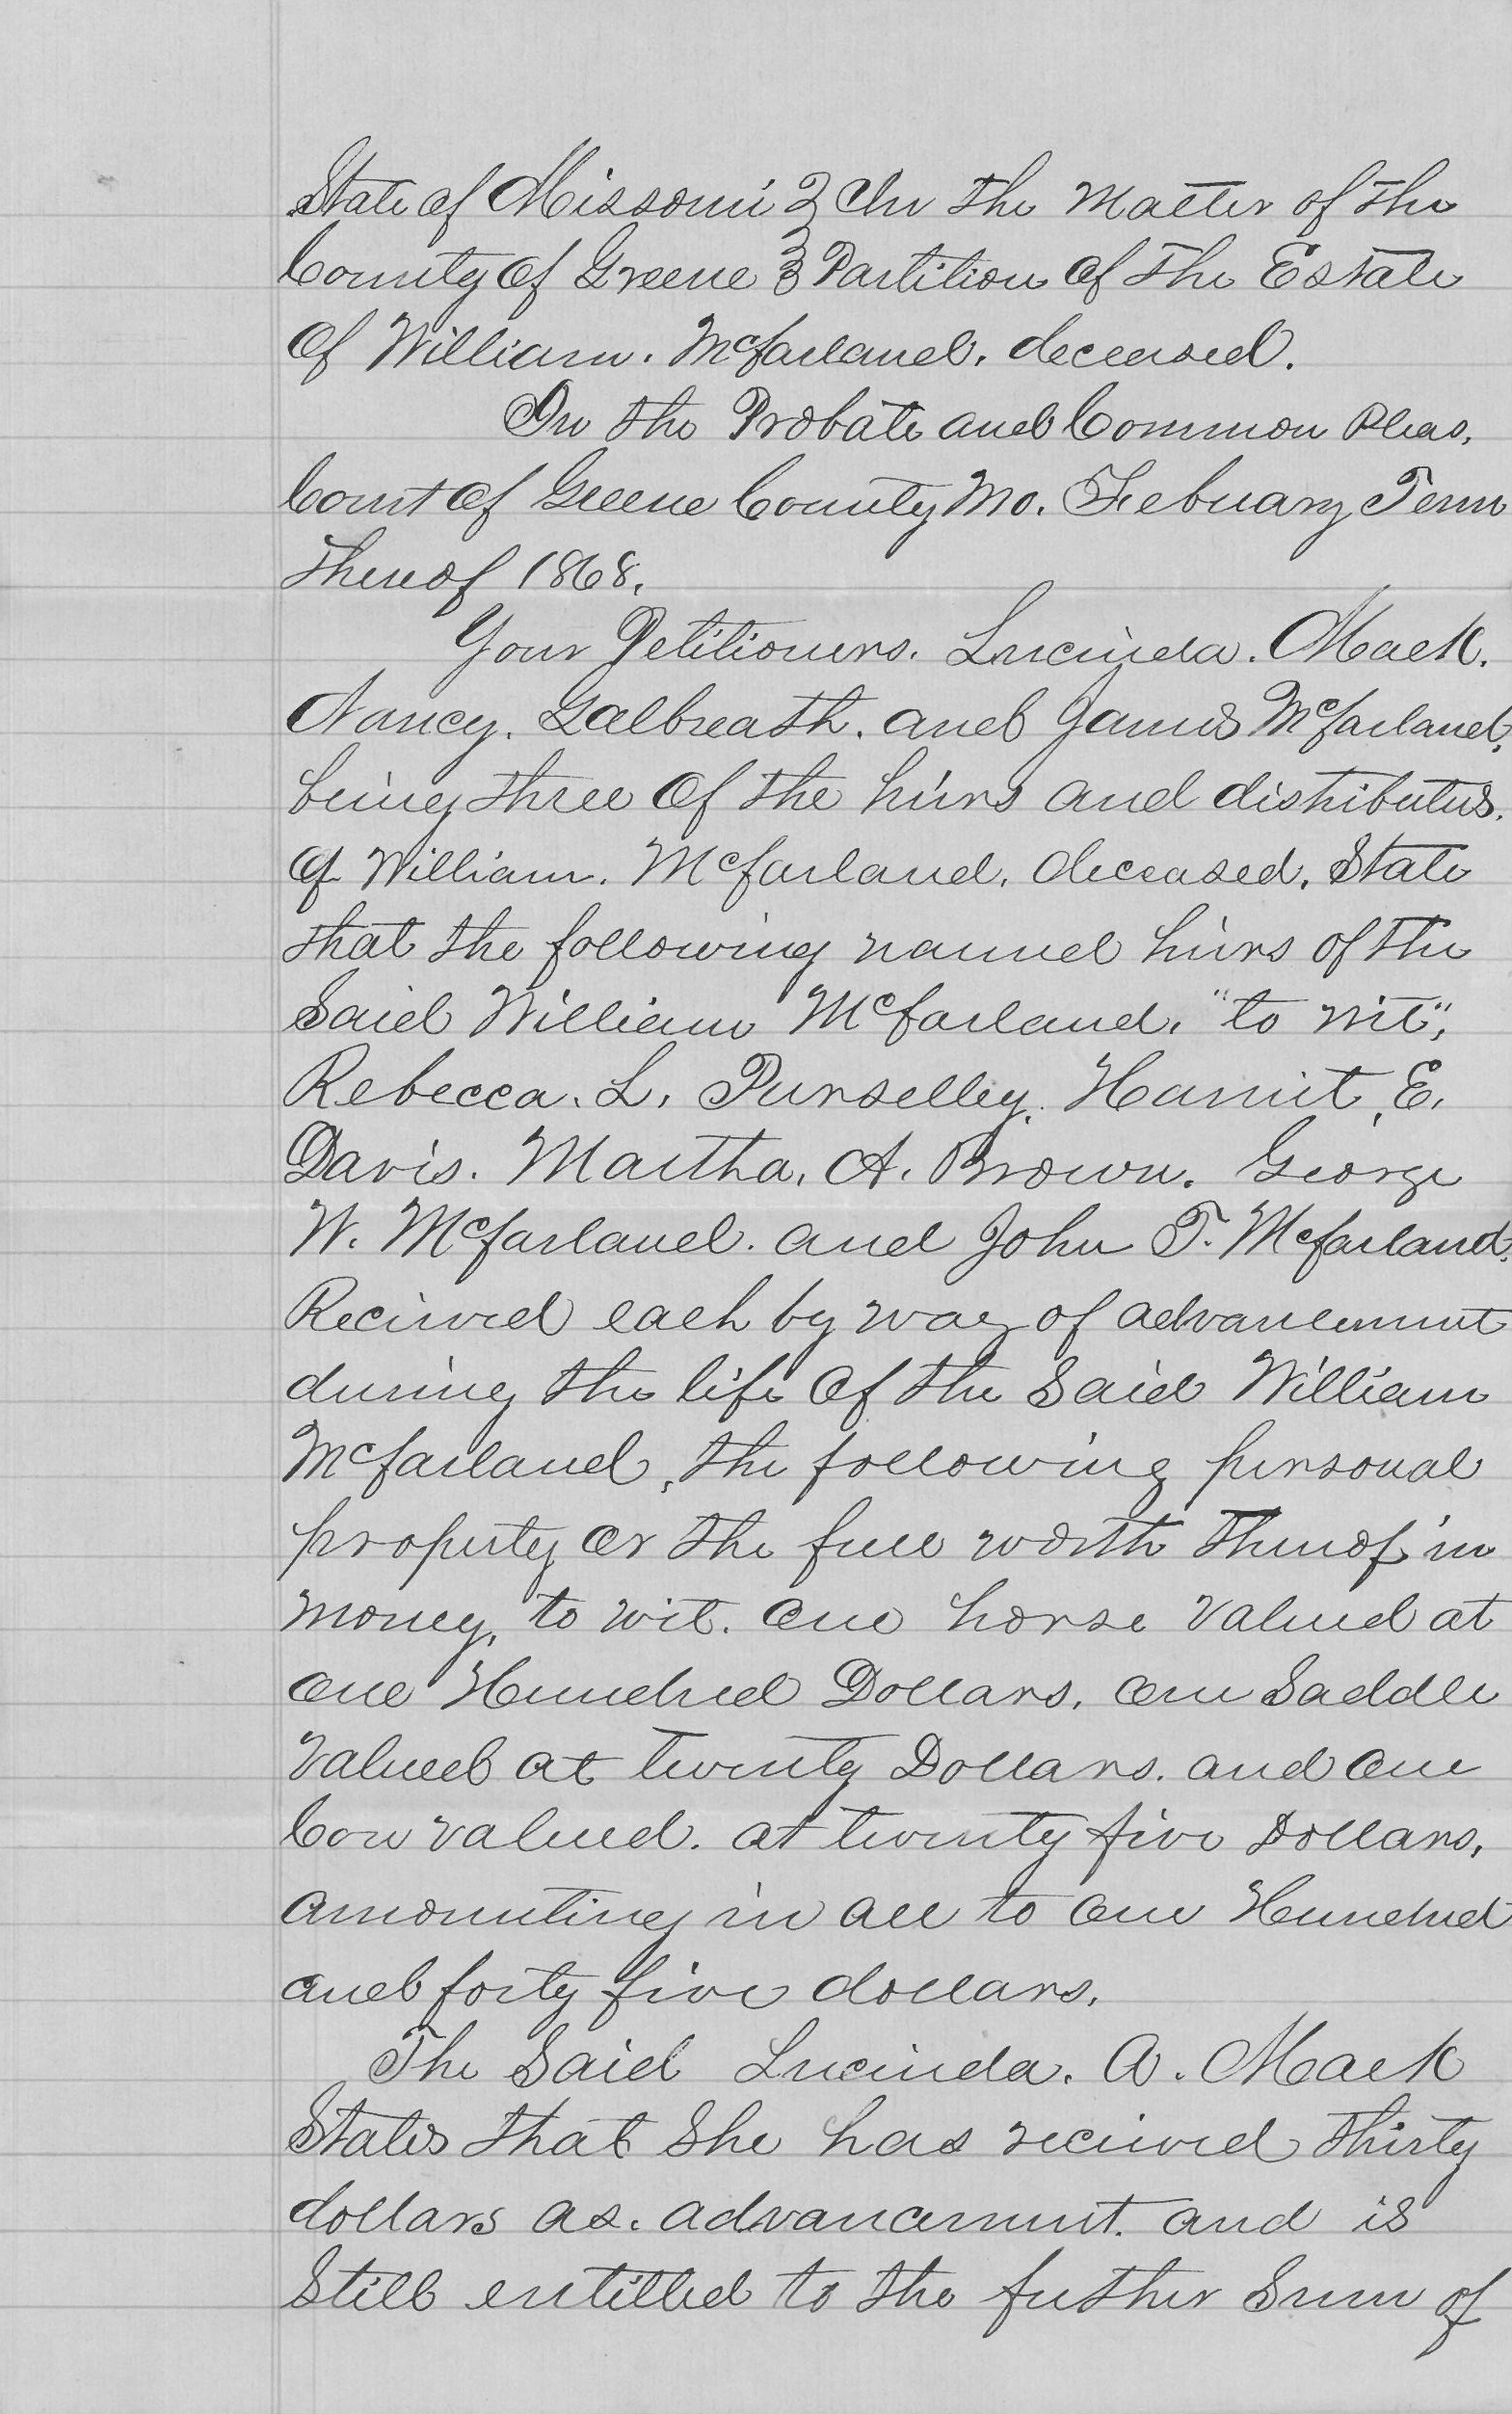 State of Missouri } In the Matter of the
County of Greene } Partition of the Estate
Of William. Mcfarland. deceased.
In the Probate and Common Pleas,
Court of Greene County Mo. Febuary Term
Thereof 1868.
Your Petitioners. Lucinda. Mack.
Nancy. Galbreath. and James Mcfarland,
being three Of the heirs and distributes.
of William. Mcfarland. deceased. State
that the following named heirs of the
Said William Mcfarland. "to wit",
Rebecca. L. Purselley. Harriet. E.
Davis. Martha. A. Brown. George
W. Mcfarland. and John T. Mcfarland.
Recieved each by way of advancement
during the life Of the Said William
Mcfarland, the following personal
property or the full worth thereof in
money, to wit. one horse valued at
one Hundred Dollars. one Saddle
Valued at twenty Dollars. and one
Cow valued. at twenty five Dollars,
amounting in all to one Hundred
and forty five dollars.
The Said Lucinda. A. Mack
States that She has recieved thirty
dollars as. advancement. and is
Still entitled to the futher Sum of